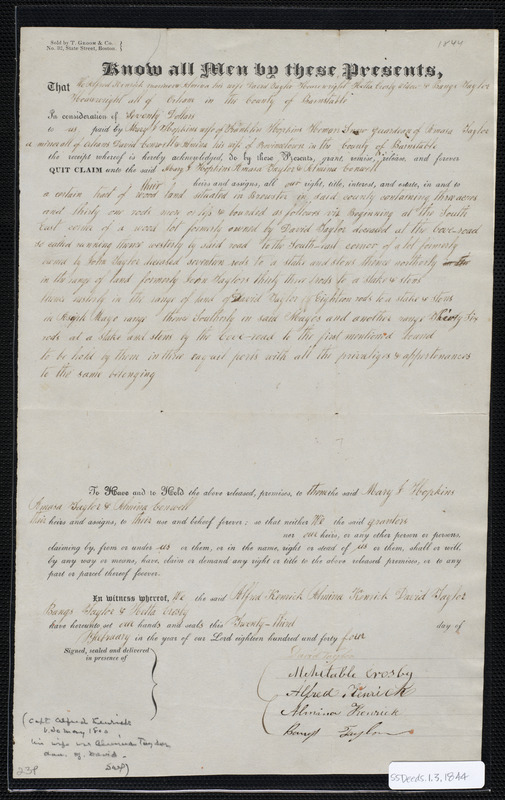 Sold by T. Groom & Co.
No. 82, State Street, Boston.
1844
Know all Men by these Presents,
That We Alfred Kenrick Almina his wife David Taylor Housewright & Bangs Taylor
Housewright all of Orleans in the County of Barnstable
In consideration of Seventy Dollars
to us, paid by Mary J Hopkins wife of Franklin Hopkins guardian of Amasa Taylor
a minor all of Orleans David Conwell & Almina his wife of Provincetown in the County of Barnstable
the receipt whereof is hereby acknowledged, do by these Presents, grant, remise, release, and forever
QUIT CLAIM unto the said Mary J Hopkins Amasa Taylor & Almina Conwell
their heirs and assigns, all our right, title, interest, and estate, in and to
a certain tract of wood land situated in Brewster in said county containing three acres
and thirty one rods more or less & bounded as follows viz Beginning at the South
East corner of a wood lot formerly owned by David Taylor deceased at the Cove-road
so called running thence westerly by said road to the South-east corner of a lot formerly
owned by John Taylor deceased seventeen rods to a stake and stone thence northerly
in the range of land formerly John Taylors thirty three rods to a stake & stone
thence easterly in the range of land of David Taylor Eighteen rods to a stake & stone
in Mayo range thence Southerly in said Mayos and another range thirty six
rods at a stake and stone by the Cove-road to the first mentioned bound
to be held by them in three equal parts with all the privileges & appurtenances
to the same belonging
To Have and to Hold the above released, premises, to them the said Mary J Hopkins
Amasa Taylor & Almina Conwell
their heirs and assigns, to their use and behoof forever; so that neither We the said grantors
nor our heirs, or any other person or persons,
claiming by, from or under us or them, or in the name, right or stead of us or them, shall or will,
by any way or means, have, claim or demand any right or title to the above released premises, or to any
part or parcel thereof forever.
In witness whereof, We the said Alfred Kenrick Almina Kenrick David Taylor
Bangs Taylor & Crosby
have hereunto set our hands and seals this Twenty-third day of
February in the year of our Lord eighteen hundred and forty four
Signed, sealed and delivered
in presence of
David Taylor
Mehitable Crosby
Alfred Kenrick
Almina Kenrick
Bangs Taylor
(Capt Alfred Kenrick
his wife was Almina Taylor,
dau. of David
239
SSDeeds.1.3.1844